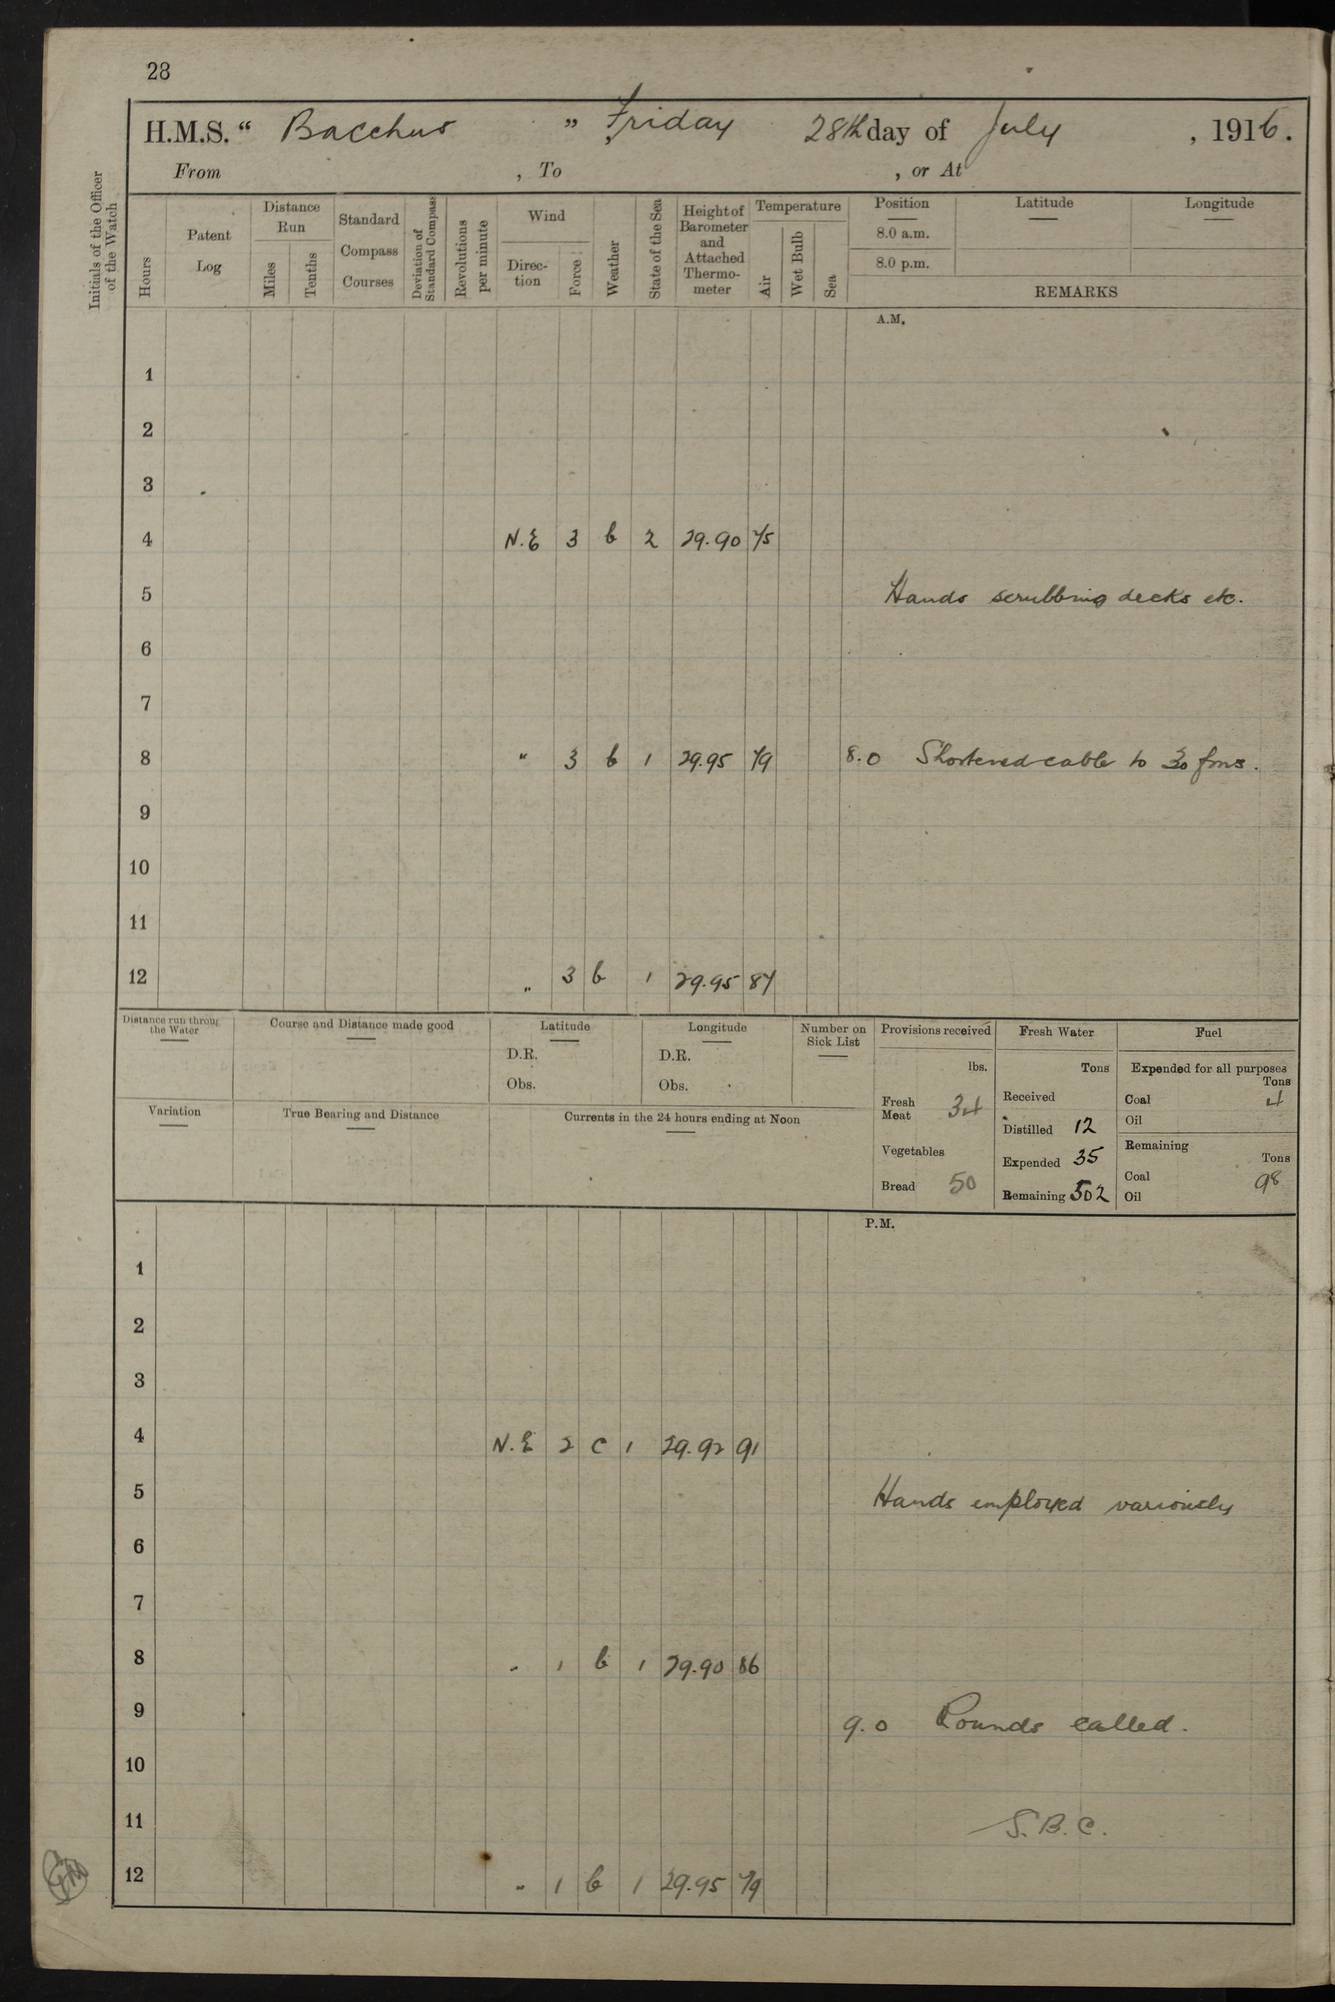 28
H.M.S. “ Bacchus ” Friday 28th day of July , 1916.
From , To , or At
Initials of the Officer of the Watch
Hours
Patent Log
Distance Run
Miles
Tenths
Standard Compass Courses
Deviation of Standard Compass
Revolutions per minute
Wind
Direc-tion
Force
Weather
State of the Sea
Height of Barometer and Attached Thermo-meter
Temperature
Air
Wet Bulb
Sea
Position
8.0 a.m.
8.0 p.m.
Latitude
Longitude
REMARKS
A.M.
1
2
3
4 N.E 3 b 2 29.90 75
5 Hands scrubbing decks etc.
6
7
8 " 3 b 1 29.95 79 8.0 Shortened cable to 30 fms.
9
10
11
12 " 3 b 1 29.95 87
Distance run through the Water
Course and Distance made good
Latitude
D.R.
Obs.
Longitude
D.R.
Obs.
Number on Sick List
Provisions received
lbs.
Fresh Meat 34
Vegetables
Bread 50
Fresh Water
Tons
Received
Distilled 12
Expended 35
Remaining 502
Fuel
Expended for all purposes
Tons
Coal 4
Oil
Remaining
Tons
Coal 98
Oil
Variation
True Bearing and Distance
Currents in the 24 hours ending at Noon
P.M.
1
2
3
4 N.E 2 c 1 29.92 91
5 Hands employed variously
6
7
8 " 1 b 1 29.90 86
9 9.0 Rounds called.
10
11 S.B.C.
12 " 1 b 1 29.95 79